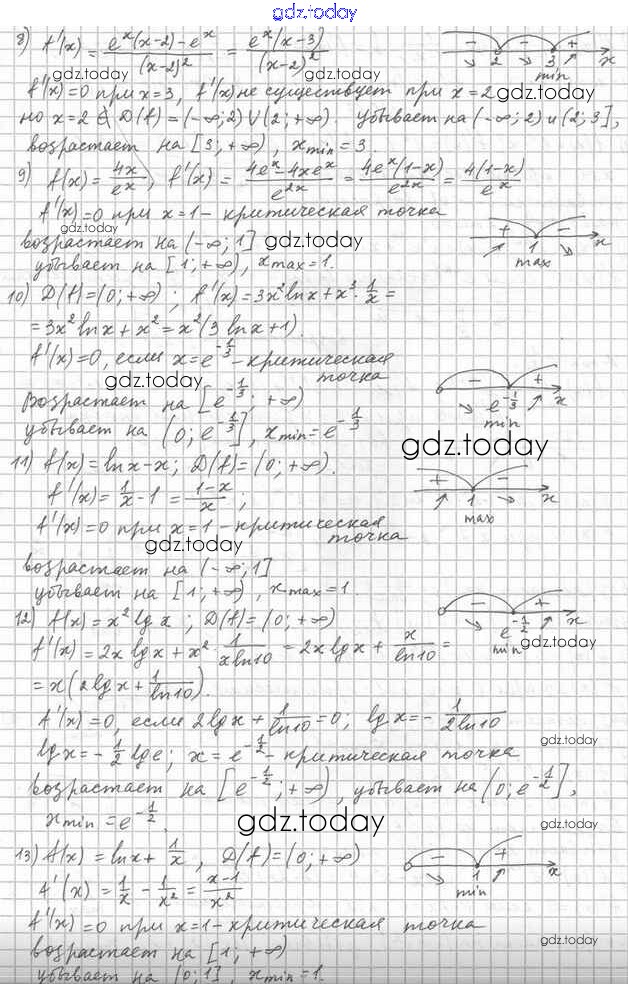 gdz.today
8) f'(x) = (eˣ(x-2) - eˣ)/(x-2)² = eˣ(x-3)/(x-2)²
- 2 - 3 + x
min
gdz.today gdz.today
f'(x)=0 при x=3, f'(x) не существует при x=2
gdz.today
но x=2 ∉ D(f) = (-∞;2) ∪ (2;+∞). убывает на (-∞;2) и (2;3],
возрастает на [3;+∞), x min = 3.
9) f(x) = 4x/eˣ, f'(x) = (4eˣ - 4xeˣ)/e²ˣ = 4eˣ(1-x)/e²ˣ = 4(1-x)/eˣ
f'(x)=0 при x=1 - критическая точка
gdz.today
+ 1 - x
max
возрастает на (-∞;1] gdz.today
убывает на [1;+∞), x max = 1.
10) D(f)=(0;+∞); f'(x)=3x² ln x + x³ · 1/x =
= 3x² ln x + x² = x²(3 ln x + 1).
f'(x)=0, если x = e^(-1/3) - критическая
точка
gdz.today
- e^(-1/3) + x
min
Возрастает на [e^(-1/3); +∞)
убывает на (0; e^(-1/3)], x min = e^(-1/3)
gdz.today
11) f(x) = ln x - x; D(f) = (0;+∞).
+ 1 - x
max
f'(x) = 1/x - 1 = (1-x)/x;
f'(x)=0 при x=1 - критическая
точка
gdz.today
возрастает на (-∞;1]
убывает на [1;+∞), x max = 1.
12) f(x) = x² lg x; D(f) = (0;+∞)
- e^(-1/2) + x
min gdz.today
f'(x) = 2x lg x + x² · 1/(x ln 10) = 2x lg x + x/ln 10 =
= x(2 lg x + 1/ln 10).
f'(x)=0, если 2 lg x + 1/ln 10 = 0; lg x = - 1/(2 ln 10)
gdz.today
lg x = - 1/2 lg e; x = e^(-1/2) - критическая точка
возрастает на [e^(-1/2); +∞), убывает на (0; e^(-1/2)],
x min = e^(-1/2).
gdz.today gdz.today
13) f(x) = ln x + 1/x, D(f) = (0;+∞)
- 1 + x
min
f'(x) = 1/x - 1/x² = (x-1)/x²
f'(x)=0 при x=1 - критическая точка
gdz.today
возрастает на [1;+∞)
убывает на (0;1], x min = 1.